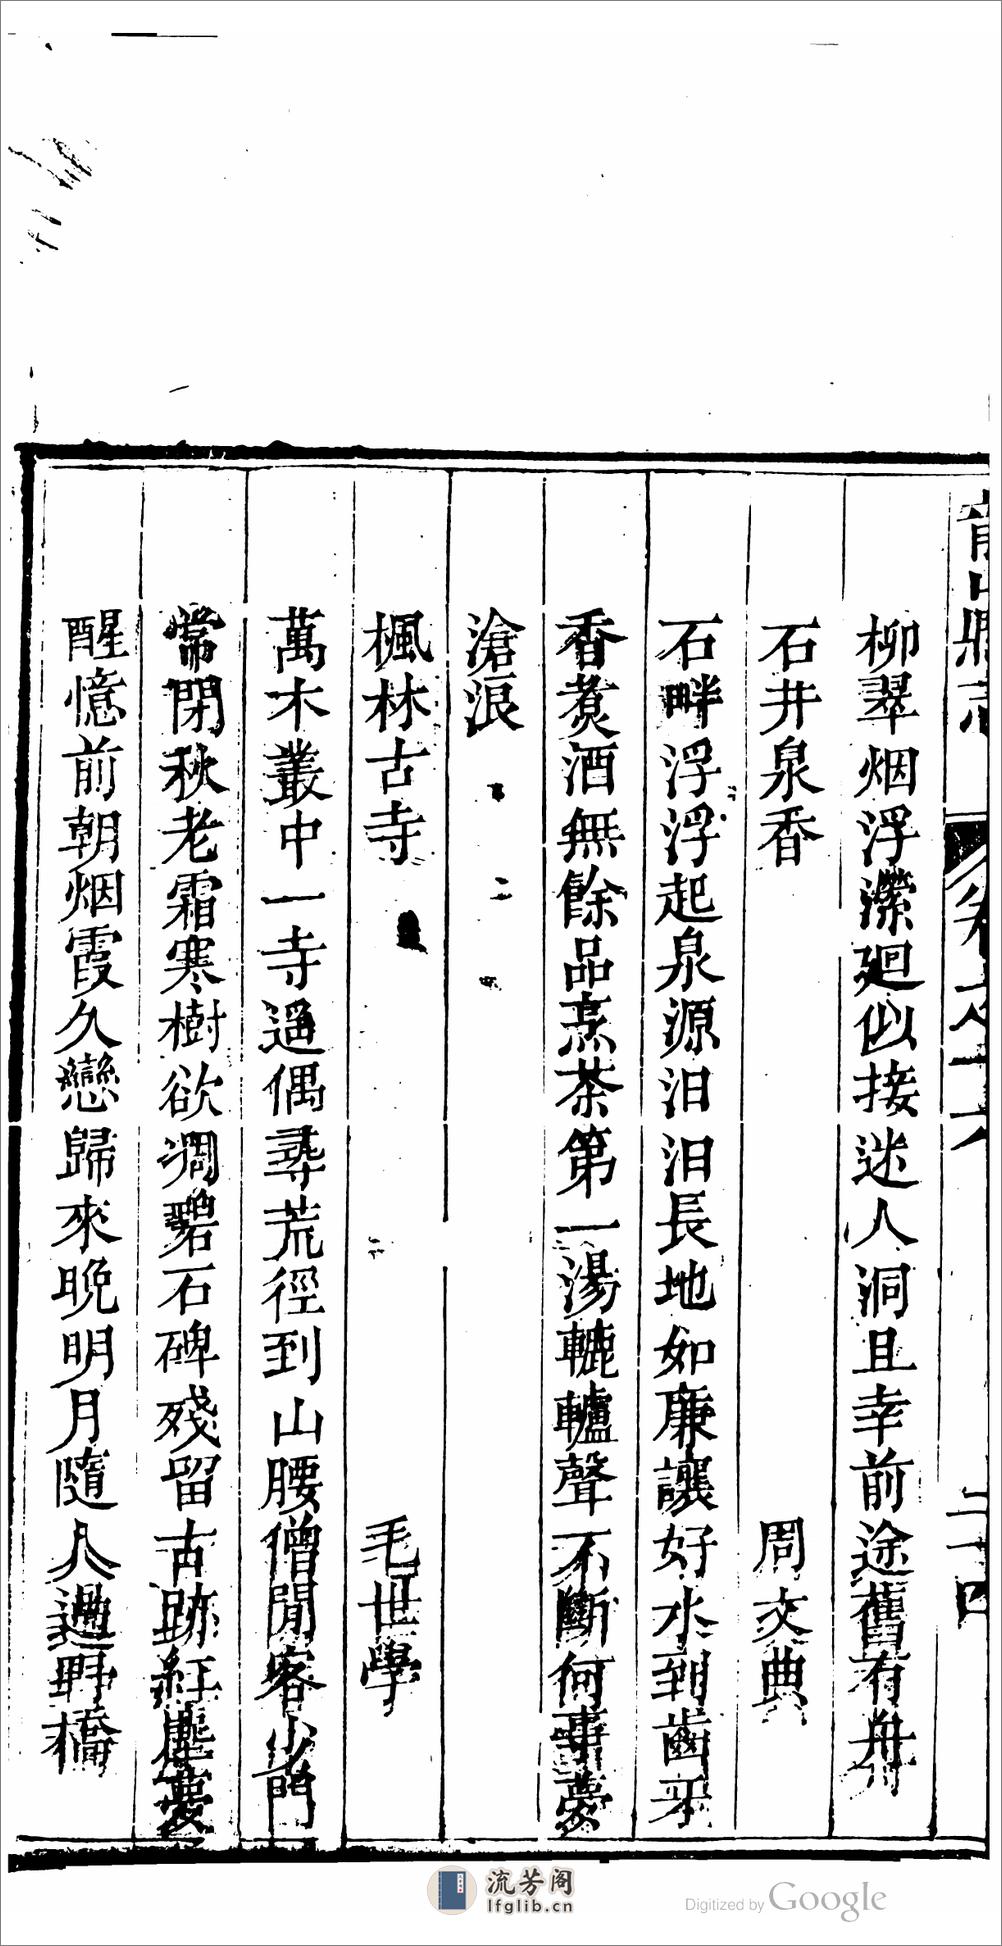 山縣志
卷之十六
二十四
柳翠烟浮瀠廻似接迷人洞且幸前途舊有舟
石井泉香
周文典
石畔浮浮起泉源汨汨長地如廉讓好水到齒牙
香煑酒無餘品烹茶第一湯轆轤聲不斷何事夢
滄浪
楓林古寺
毛世學
萬木叢中一寺遥偶尋荒徑到山腰僧閒客少門
常閉秋老霜寒樹欲凋碧石碑殘留古跡紅塵夢
醒憶前朝烟霞久戀歸來晚明月隨人過野橋
流芳阁
lfglib.cn
Digitized by Google